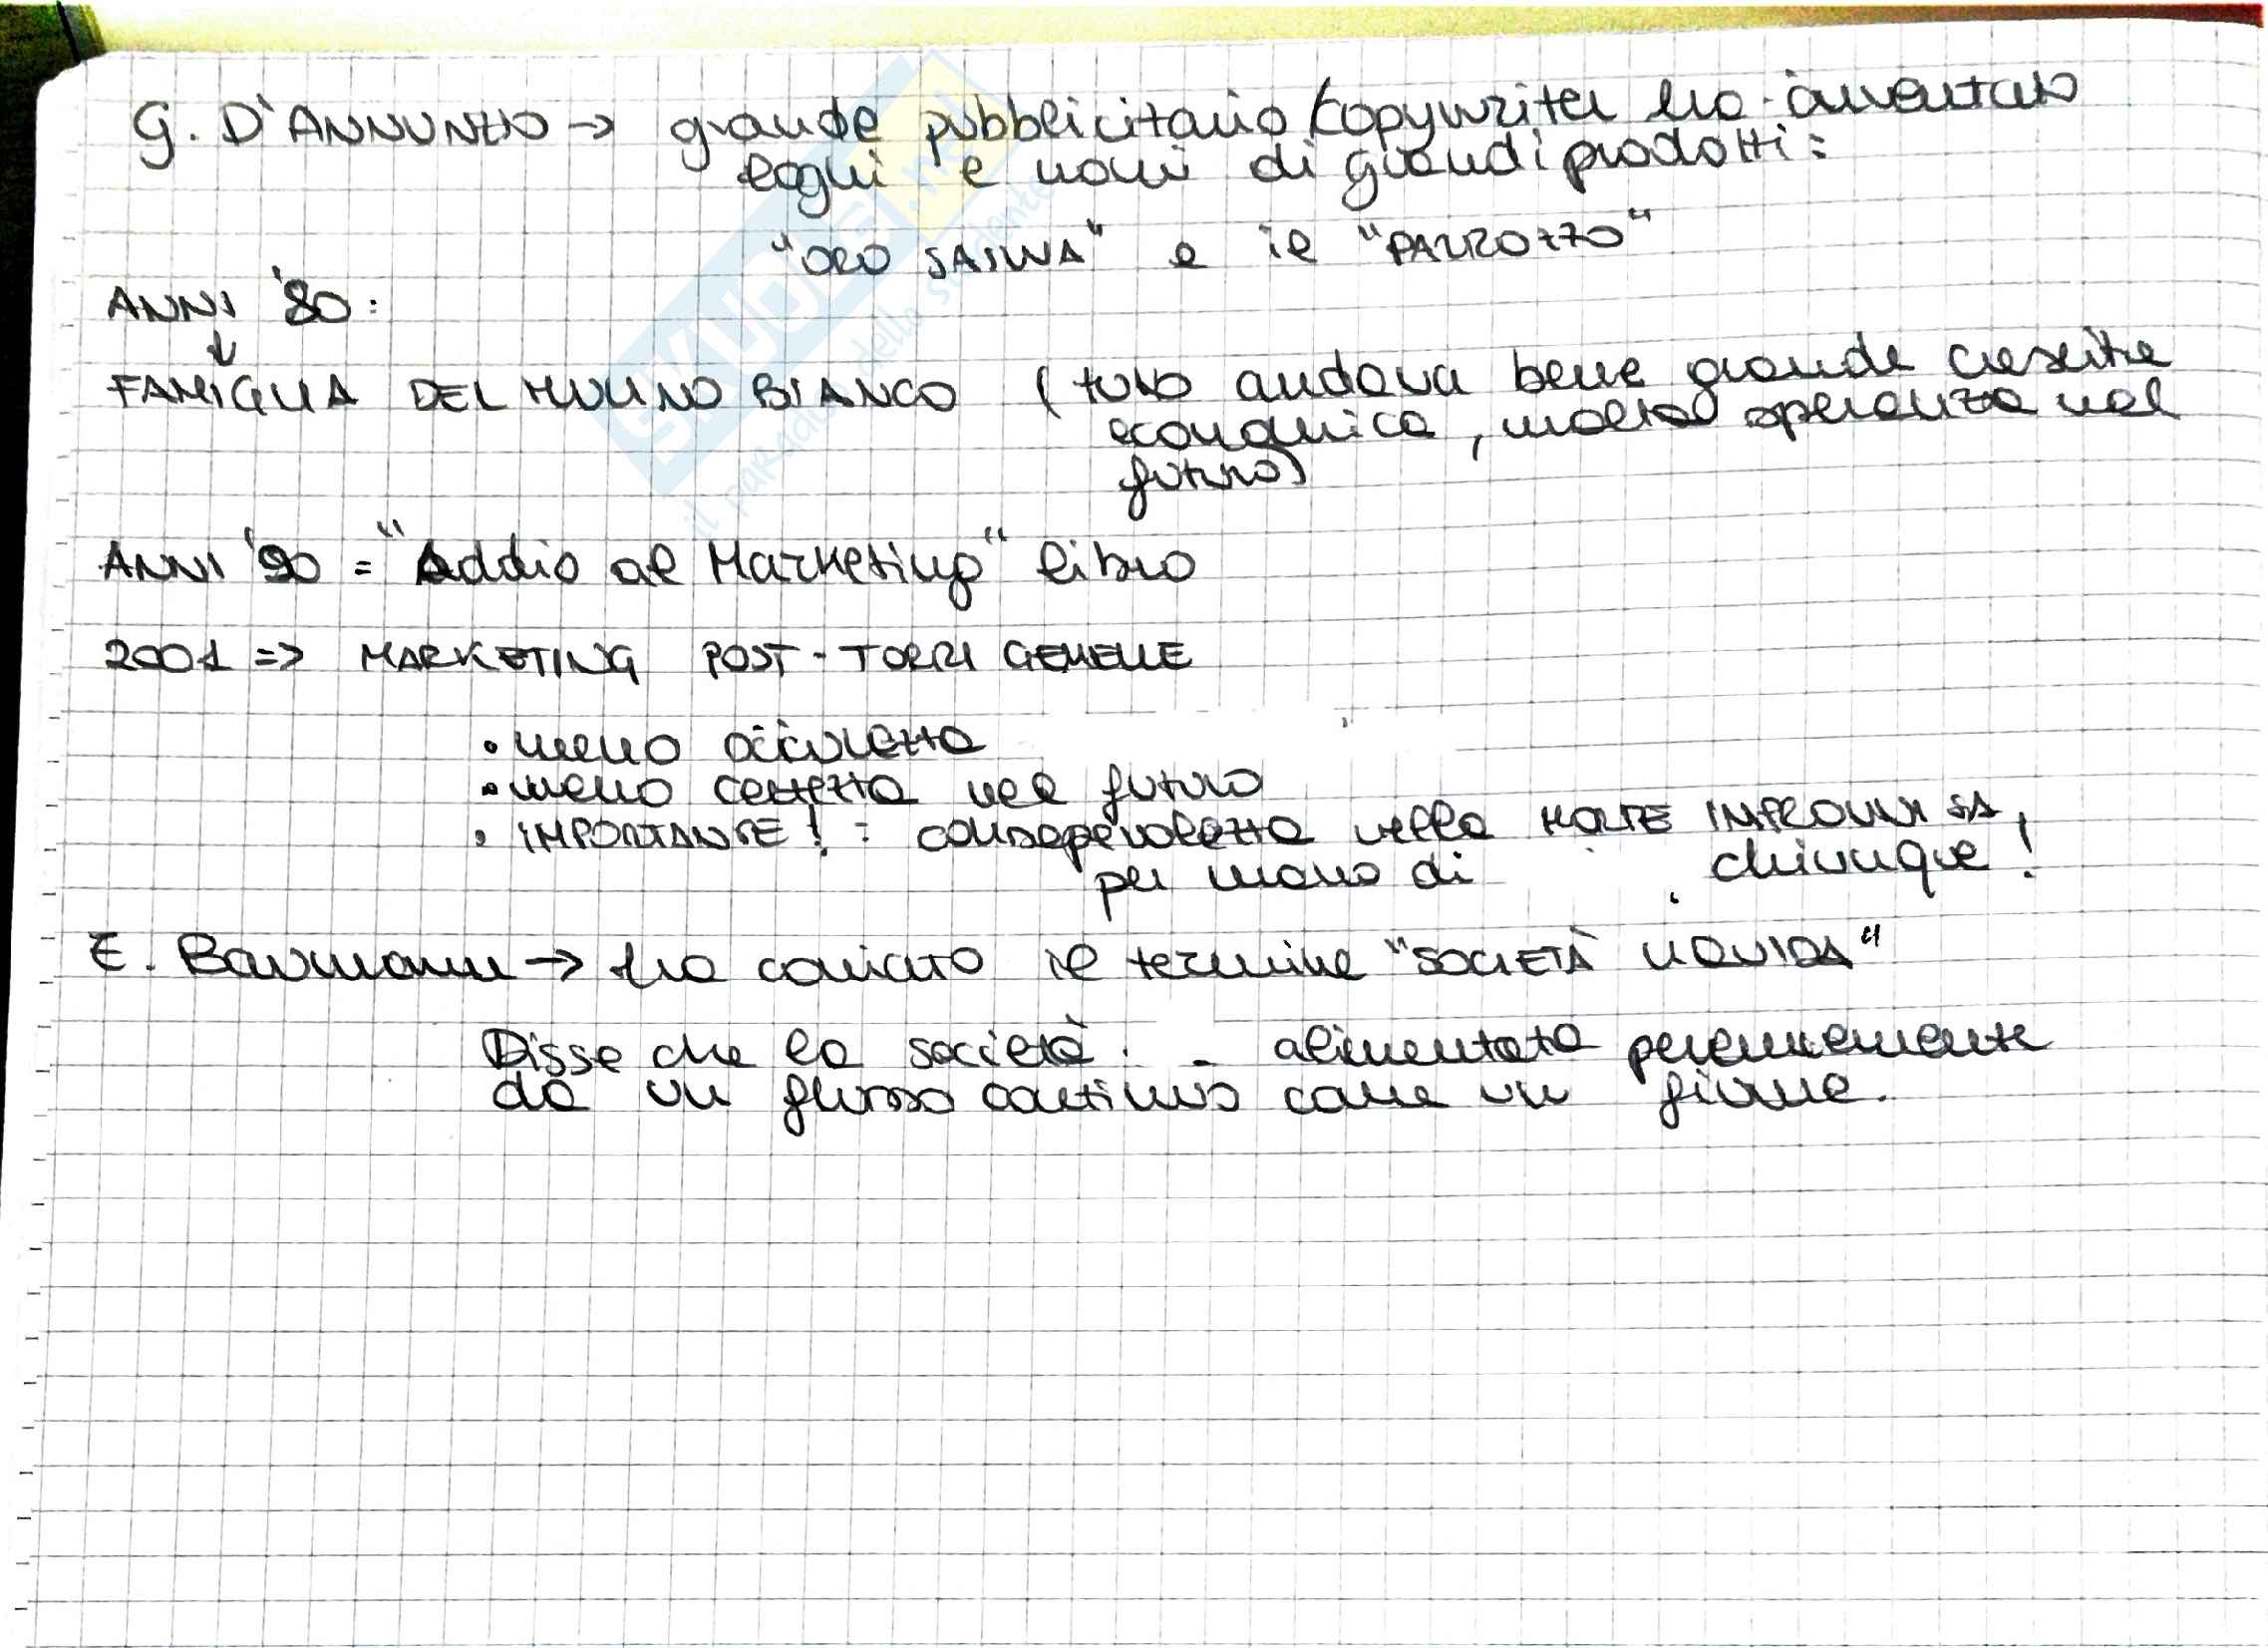 G. D'ANNUNZIO → grande pubblicitario/copywriter ha inventato
loghi e nomi di grandi prodotti:
"ORO SAIWA" e il "PARROZZO"
ANNI '80:
↓
FAMIGLIA DEL MULINO BIANCO (tutto andava bene grande crescita
economica, molta speranza nel
futuro)
ANNI '90 = "Addio al Marketing" libro
2001 => MARKETING POST-TORRI GEMELLE
• meno sicurezza
• meno certezza nel futuro
• IMPORTANTE! = consapevolezza nella MORTE IMPROVVISA,
per mano di chiunque!
E. Baumann → ha coniato il termine "SOCIETÀ LIQUIDA"
Disse che la società alimentata perennemente
da un flusso continuo come un fiume.
SKUOLA.net
il paradiso dello studente